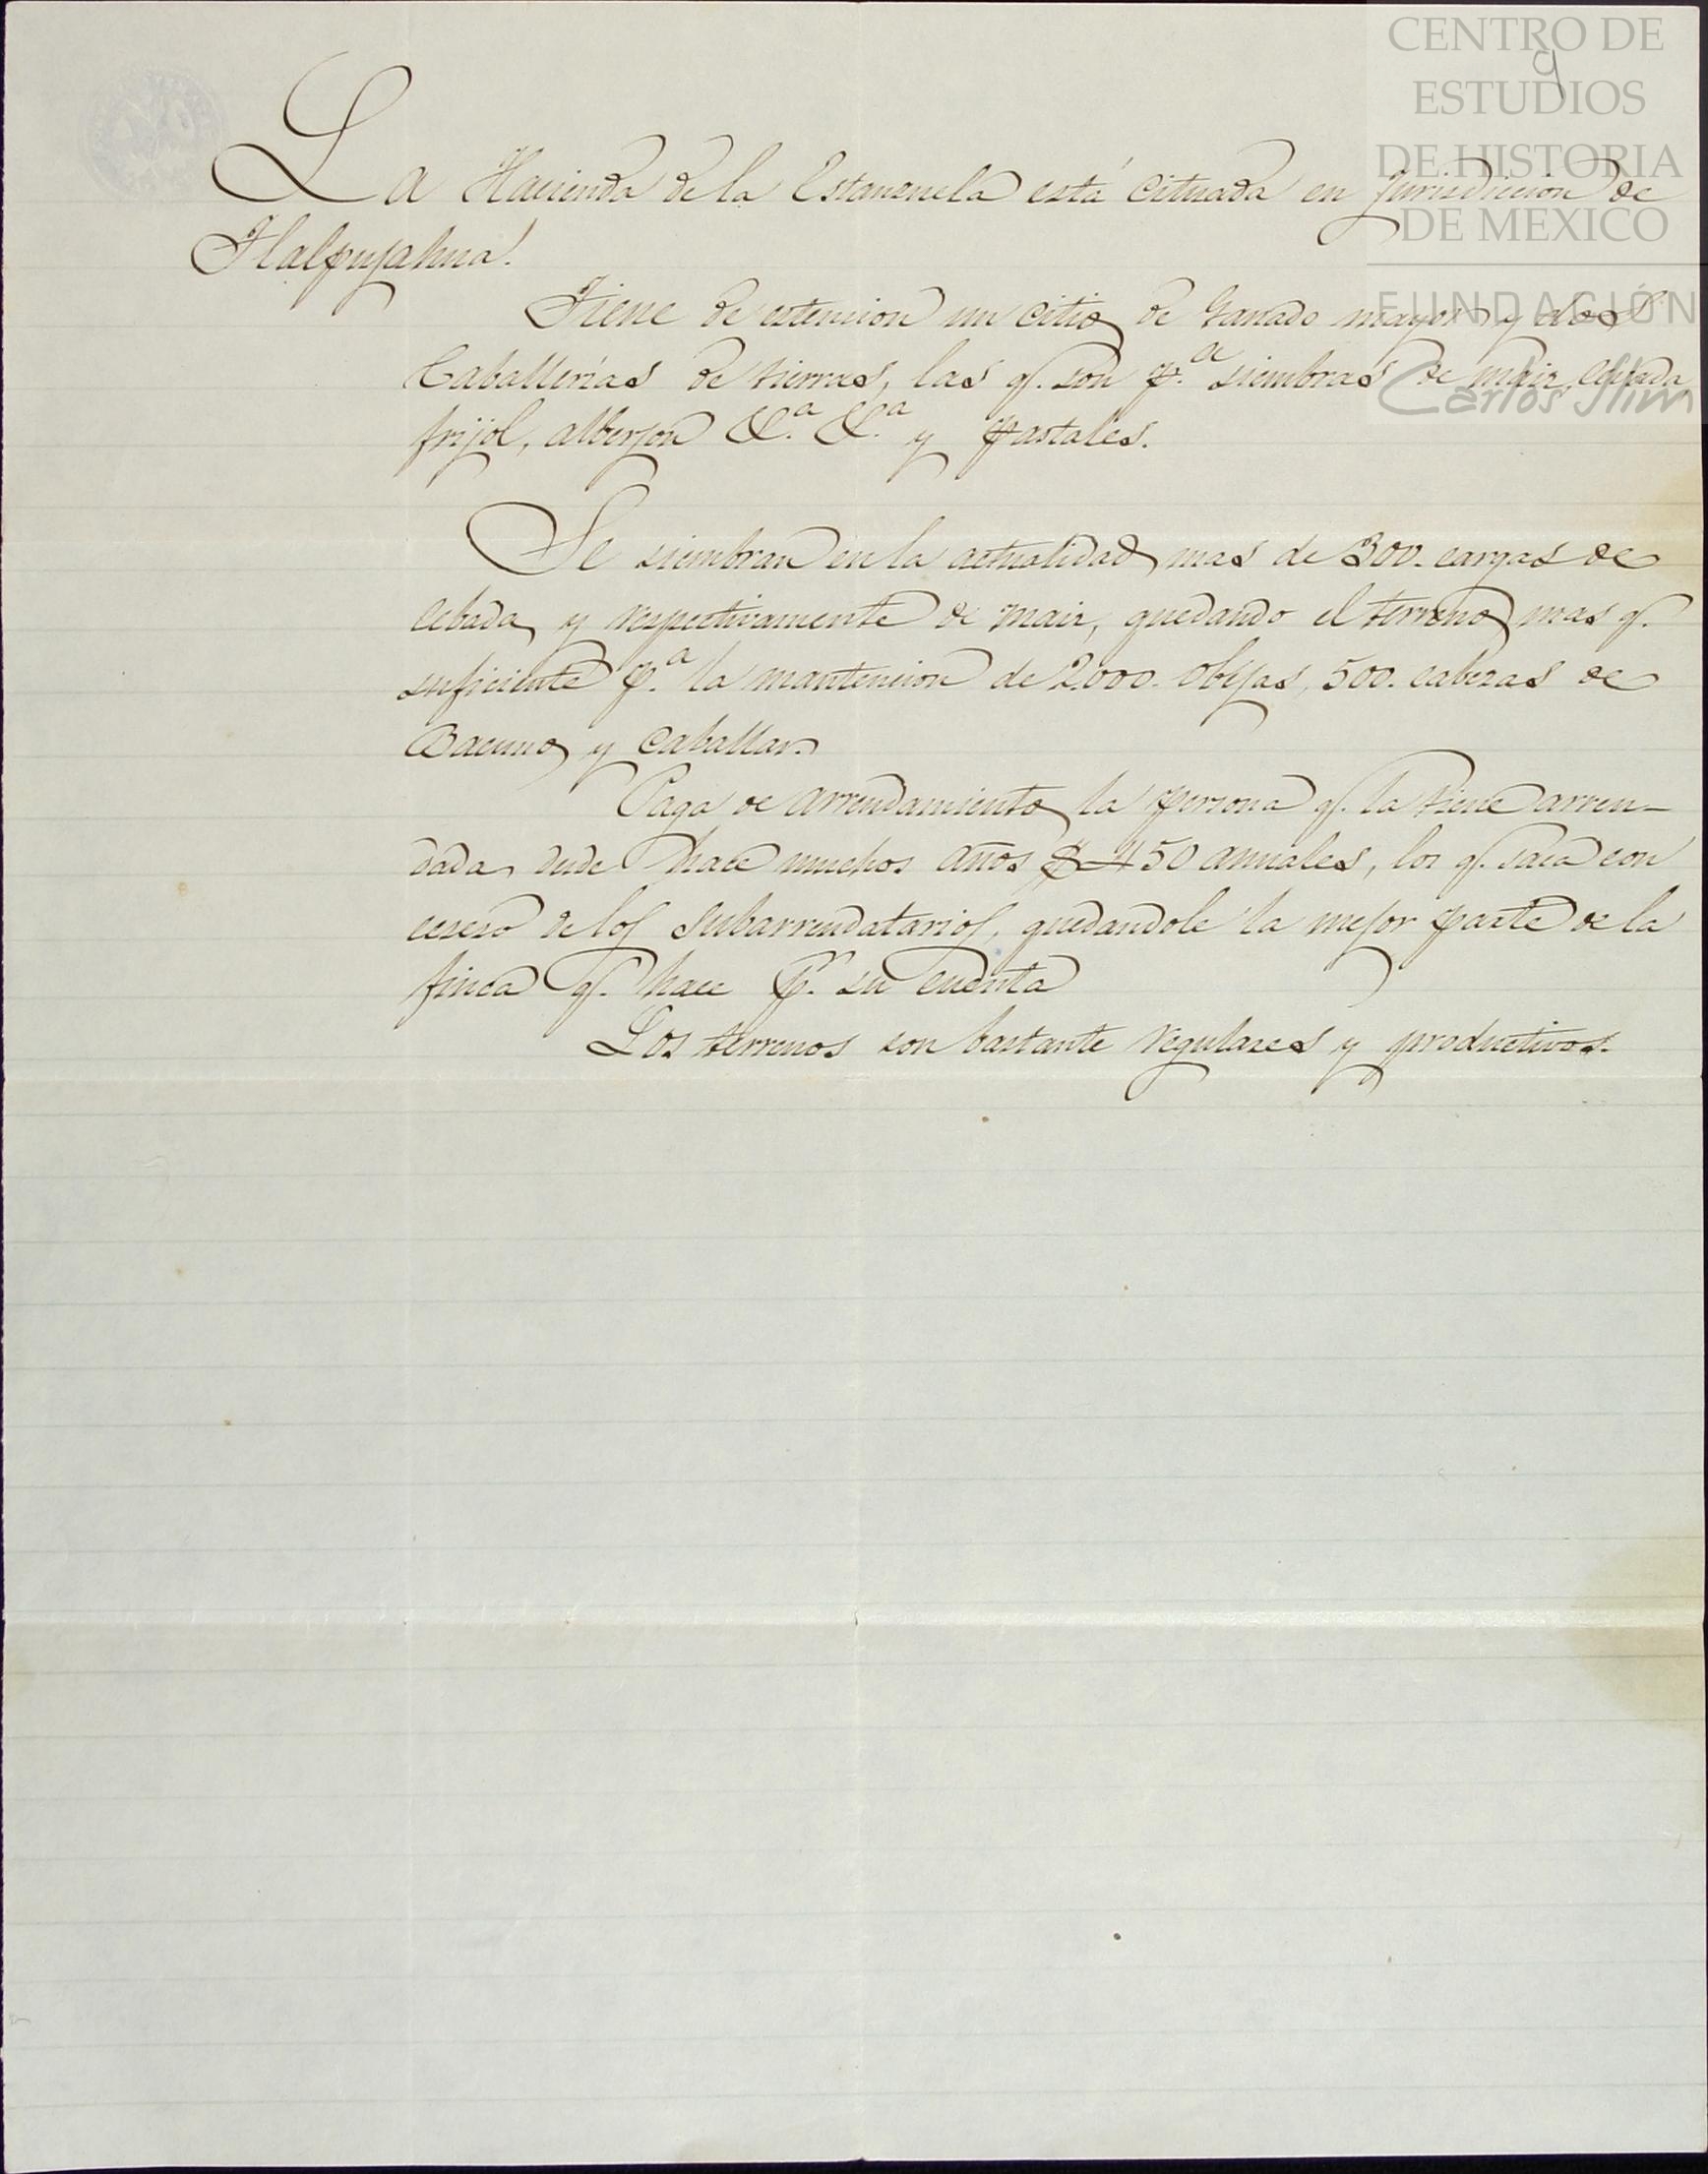 CENTRO DE
ESTUDIOS
DE HISTORIA
DE MEXICO
FUNDACIÓN
Carlos Slim
9
La Hacienda de la Estanzuela está cituada en Jurisdiccion de
Tlalpujahua.
Tiene de estencion un citio de Ganado mayor y dos
Caballerías de tierras, las q. son p.a siembras de maiz, cebada,
frijol, alberjon &.a &.a y pastales.
Se siembran en la actualidad mas de 300. cargas de
cebada y respectivamente de maiz, quedando el terreno mas q.
suficiente p.a la mantencion de 2.000. obejas, 500. cabezas de
Bacuno y caballar.
Paga de arrendamiento la persona q. la tiene arren-
dada desde hace muchos años $450 anuales, los q. saca con
ecseso de los subarrendatarios, quedandole la mejor parte de la
finca q. hace p.r su cuenta
Los terrenos son bastante regulares y productivos.